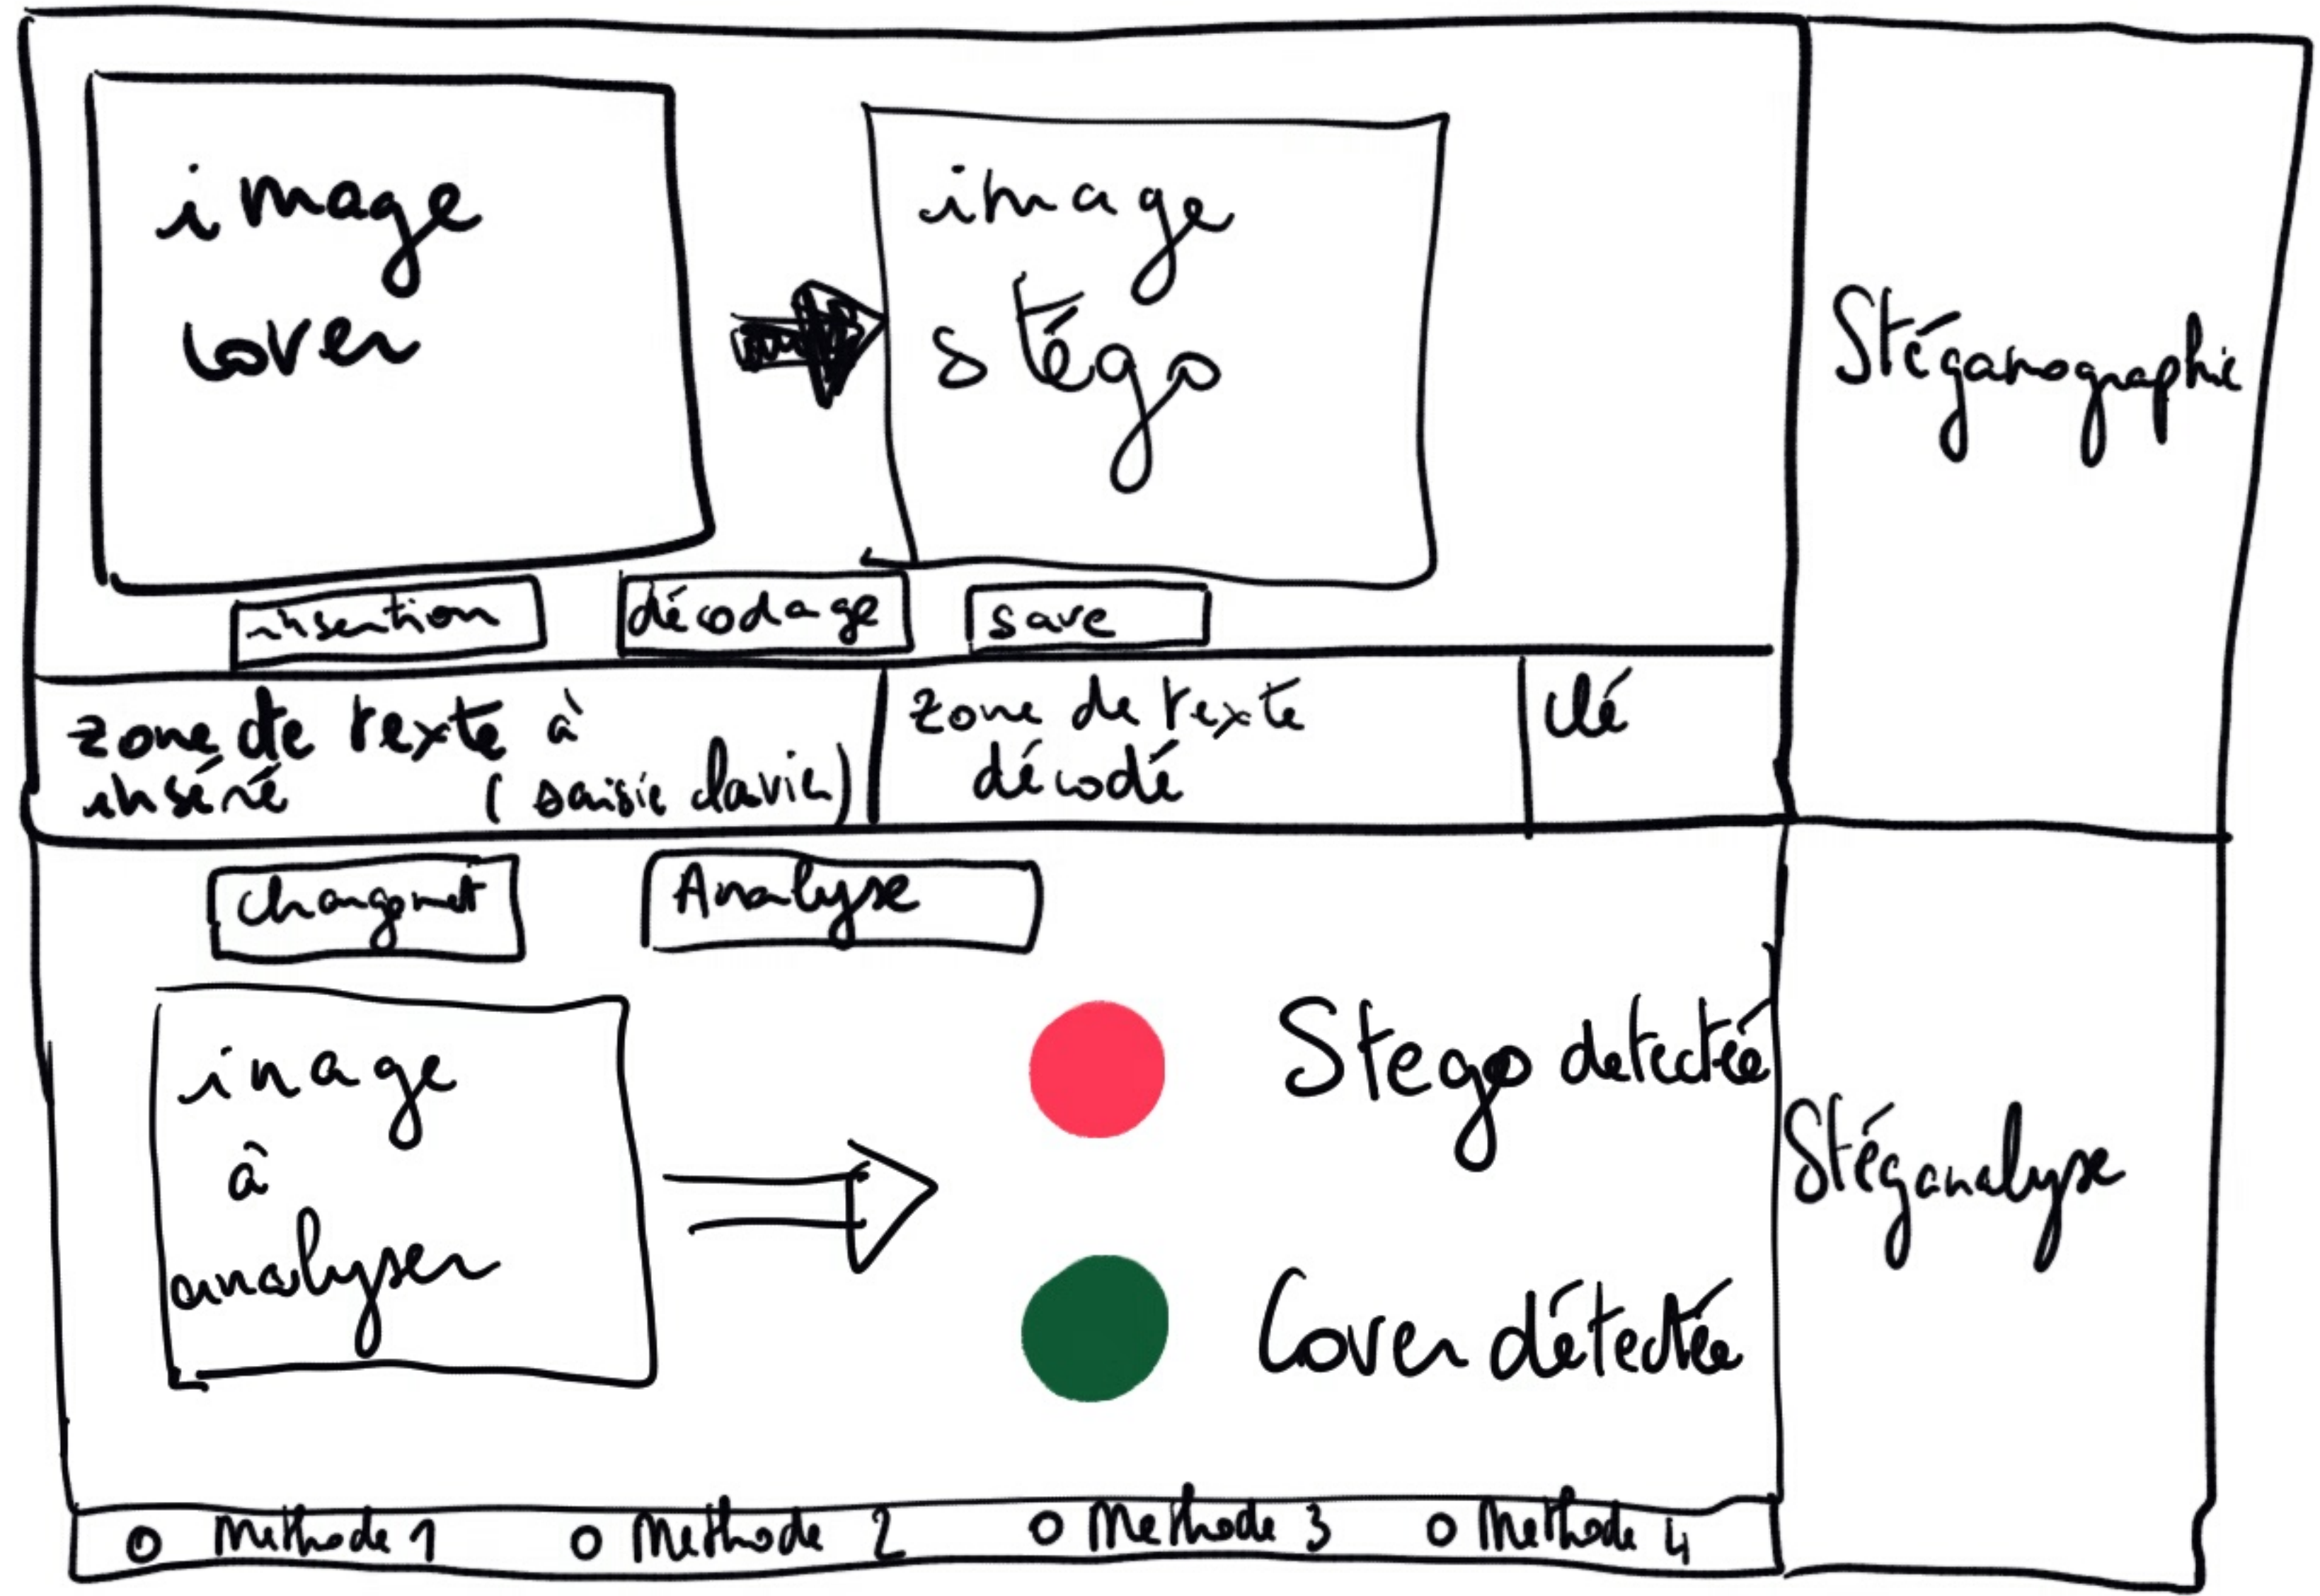 image
cover
image
stégo
Stéganographie
insertion
décodage
save
zone de texte à
inséré (saisie clavier)
zone de texte
décodé
clé
changemet
Analyse
inage
à
analyser
Stego detectée
Cover détectée
Stéganalyse
O Methode 1
O Methode 2
O Methode 3
O Methode 4